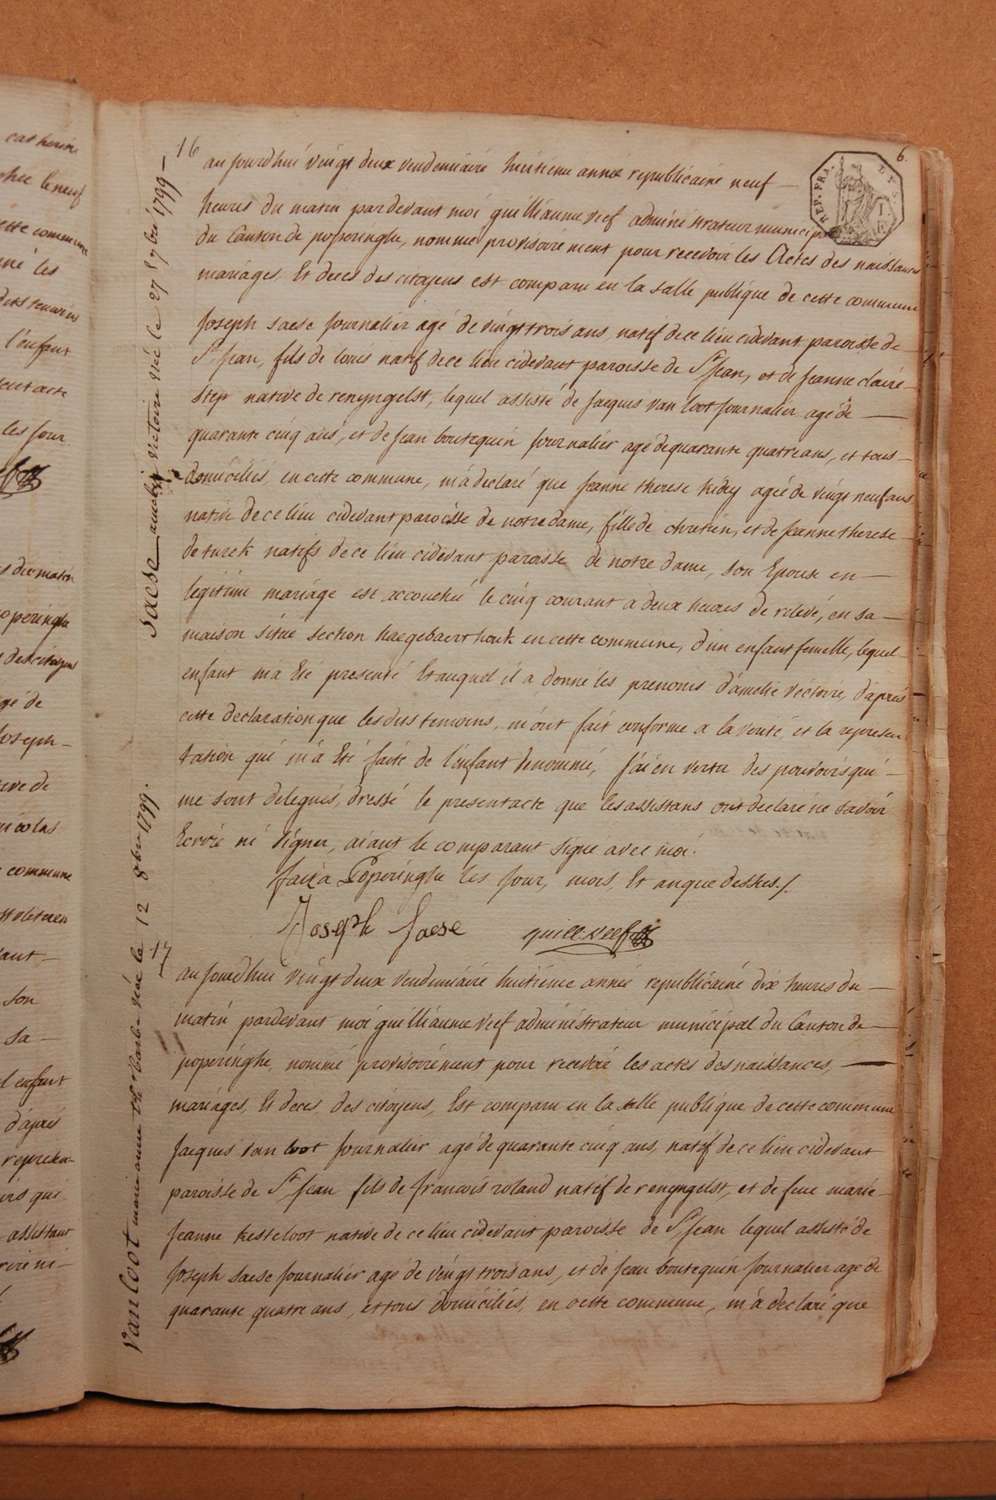 6.
REP. FRA.
16
Saese amelie victoire née le 27 7bre 1799
aujourdhui vingt deux vendemiaire huitieme année republicaine neuf
heures du matin pardevant moi guilliaume veef administrateur municipal
du Canton de poperinghe, nommé provisoirement pour recevoir les Actes des naissances
mariages, Et deces des citoyens est comparu en la salle publique de cette commune
Joseph saese Journalier agé de vingt trois ans, natif de ce lieu cidevant paroisse de
St. Jean, fils de louis natif de ce lieu cidevant paroisse de St. Jean, et de Jeanne claire
step native de renyngelst, lequel assisté de Jacques van loot Journalier agé de
quarante cinq ans, et de Jean boutequin Journalier agé de quarante quatre ans, et tous
domiciliés, en cette commune, m'a declaré que Jeanne therese agée de vingt neuf ans
native de ce lieu cidevant paroisse de notre dame, fille de chretien, et de Jeanne therese
de turck natifs de ce lieu cidevant paroisse de notre dame, son Epouse en
legitime mariage est accouchée le cinq courant a deux heures de relevé, en sa
maison située section haegebaert houk en cette commune, d'un enfant femelle, lequel
enfant m'a Eté presenté Et auquel il a donné les prenoms d'amelie victoire, d'après
cette declaration que les dits temoins, m'ont fait conforme a la verité, et la represen
tation qui m'a Eté faite de l'enfant denommé, J'ai en vertu des pouvoirs qui
me sont delegués, dressé le present acte que les assistans ont declaré ne savoir
Ecrire ni signer, aiant le comparant signé avec moi.
fait a Poperinghe les Jour, mois, Et an que dessus./.
Joseph Saese guill. veef
17
Van loot marie anne née le 12 8bre 1799.
aujourdhui vingt deux vendemiaire huitieme année republicaine dix heures du
matin pardevant moi guilliaume veef administrateur municipal du Canton de
poperinghe, nommé provisoirement pour recevoir les actes des naissances,
mariages, Et deces des citoyens, Est comparu en la salle publique de cette commune
Jacques van loot Journalier agé de quarante cinq ans, natif de ce lieu cidevant
paroisse de St. Jean fils de francois roland natif de renyngelst, et de feue marie
Jeanne kesteloot native de ce lieu cidevant paroisse de St. Jean lequel assisté de
Joseph saese Journalier agé de vingt trois ans, et de Jean boutequin Journalier agé de
quarante quatre ans, et tous domiciliés, en cette commune, m'a declaré que